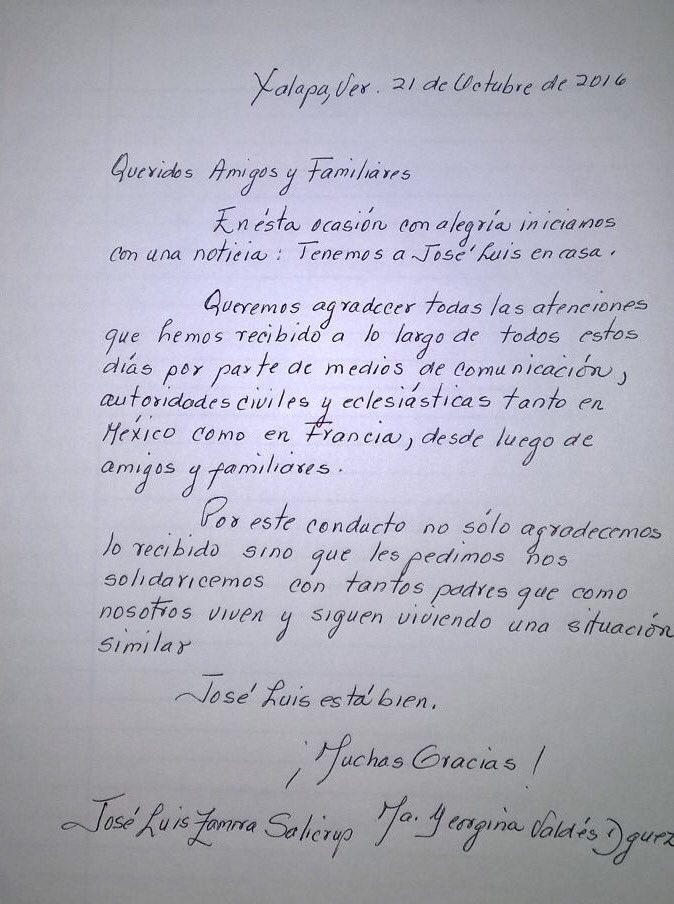 Xalapa, Ver. 21 de Octubre de 2016
Queridos Amigos y Familiares
En ésta ocasión con alegría iniciamos
con una noticia: Tenemos a José Luis en casa.
Queremos agradecer todas las atenciones
que hemos recibido a lo largo de todos estos
días por parte de medios de comunicación,
autoridades civiles y eclesiásticas tanto en
México como en Francia, desde luego de
amigos y familiares.
Por este conducto no sólo agradecemos
lo recibido sino que les pedimos nos
solidaricemos con tantos padres que como
nosotros viven y siguen viviendo una situación
similar
José Luis está bien.
¡Muchas Gracias!
José Luis Zamora Salicrup Ma. Georgina Valdés Dguez